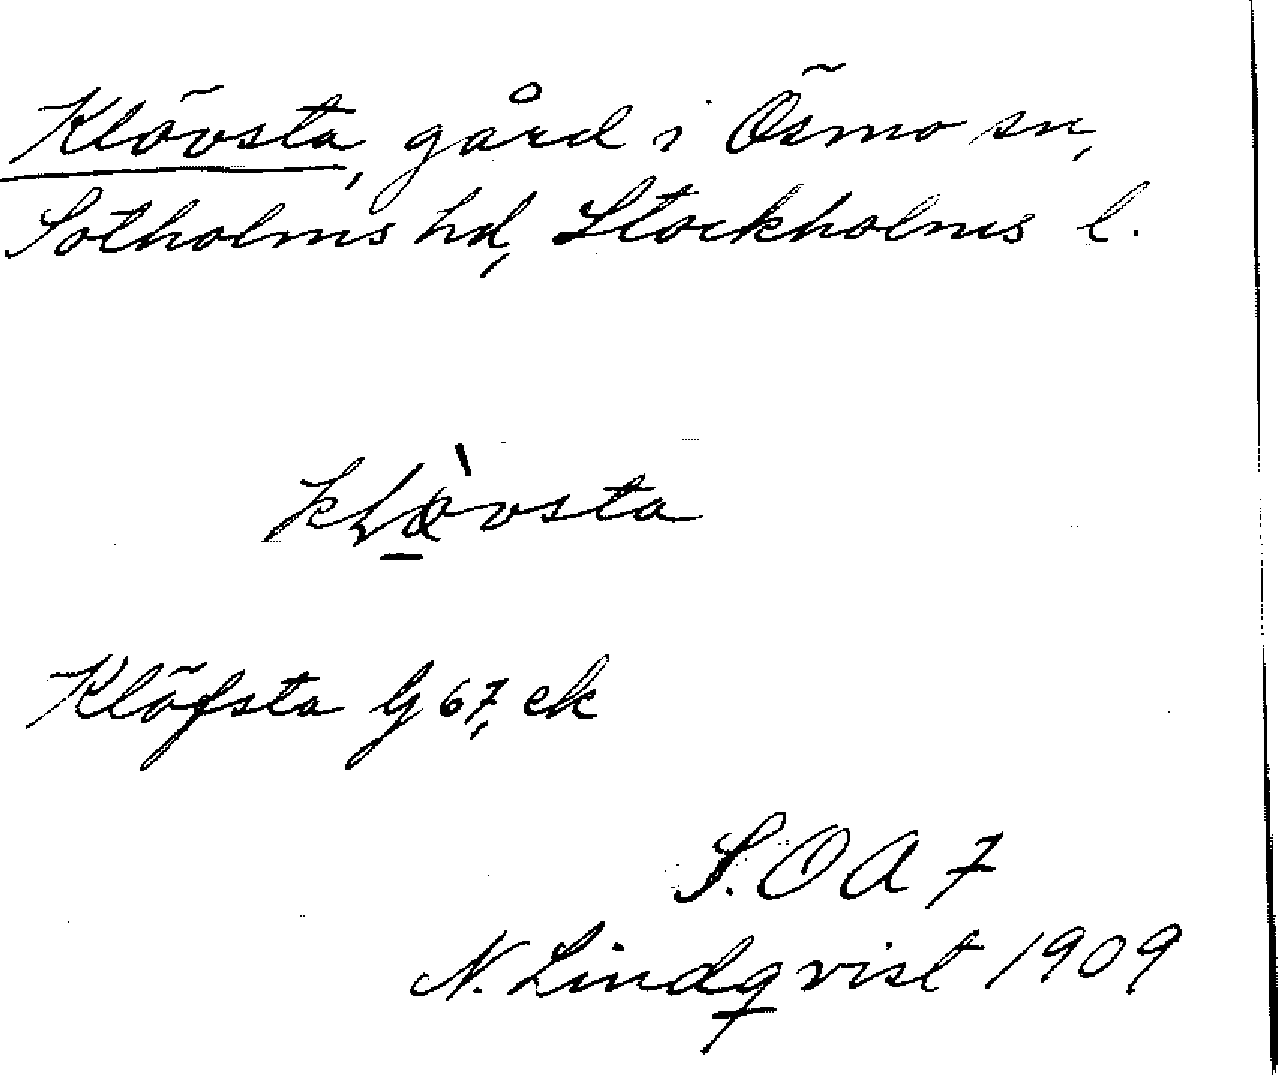 Klövsta, gård i Ösmo sn,
Sotholms hd, Stockholms l.
klò̱vsta
Klöfsta G 67, ek
S. O A 7
N. Lindqvist 1909